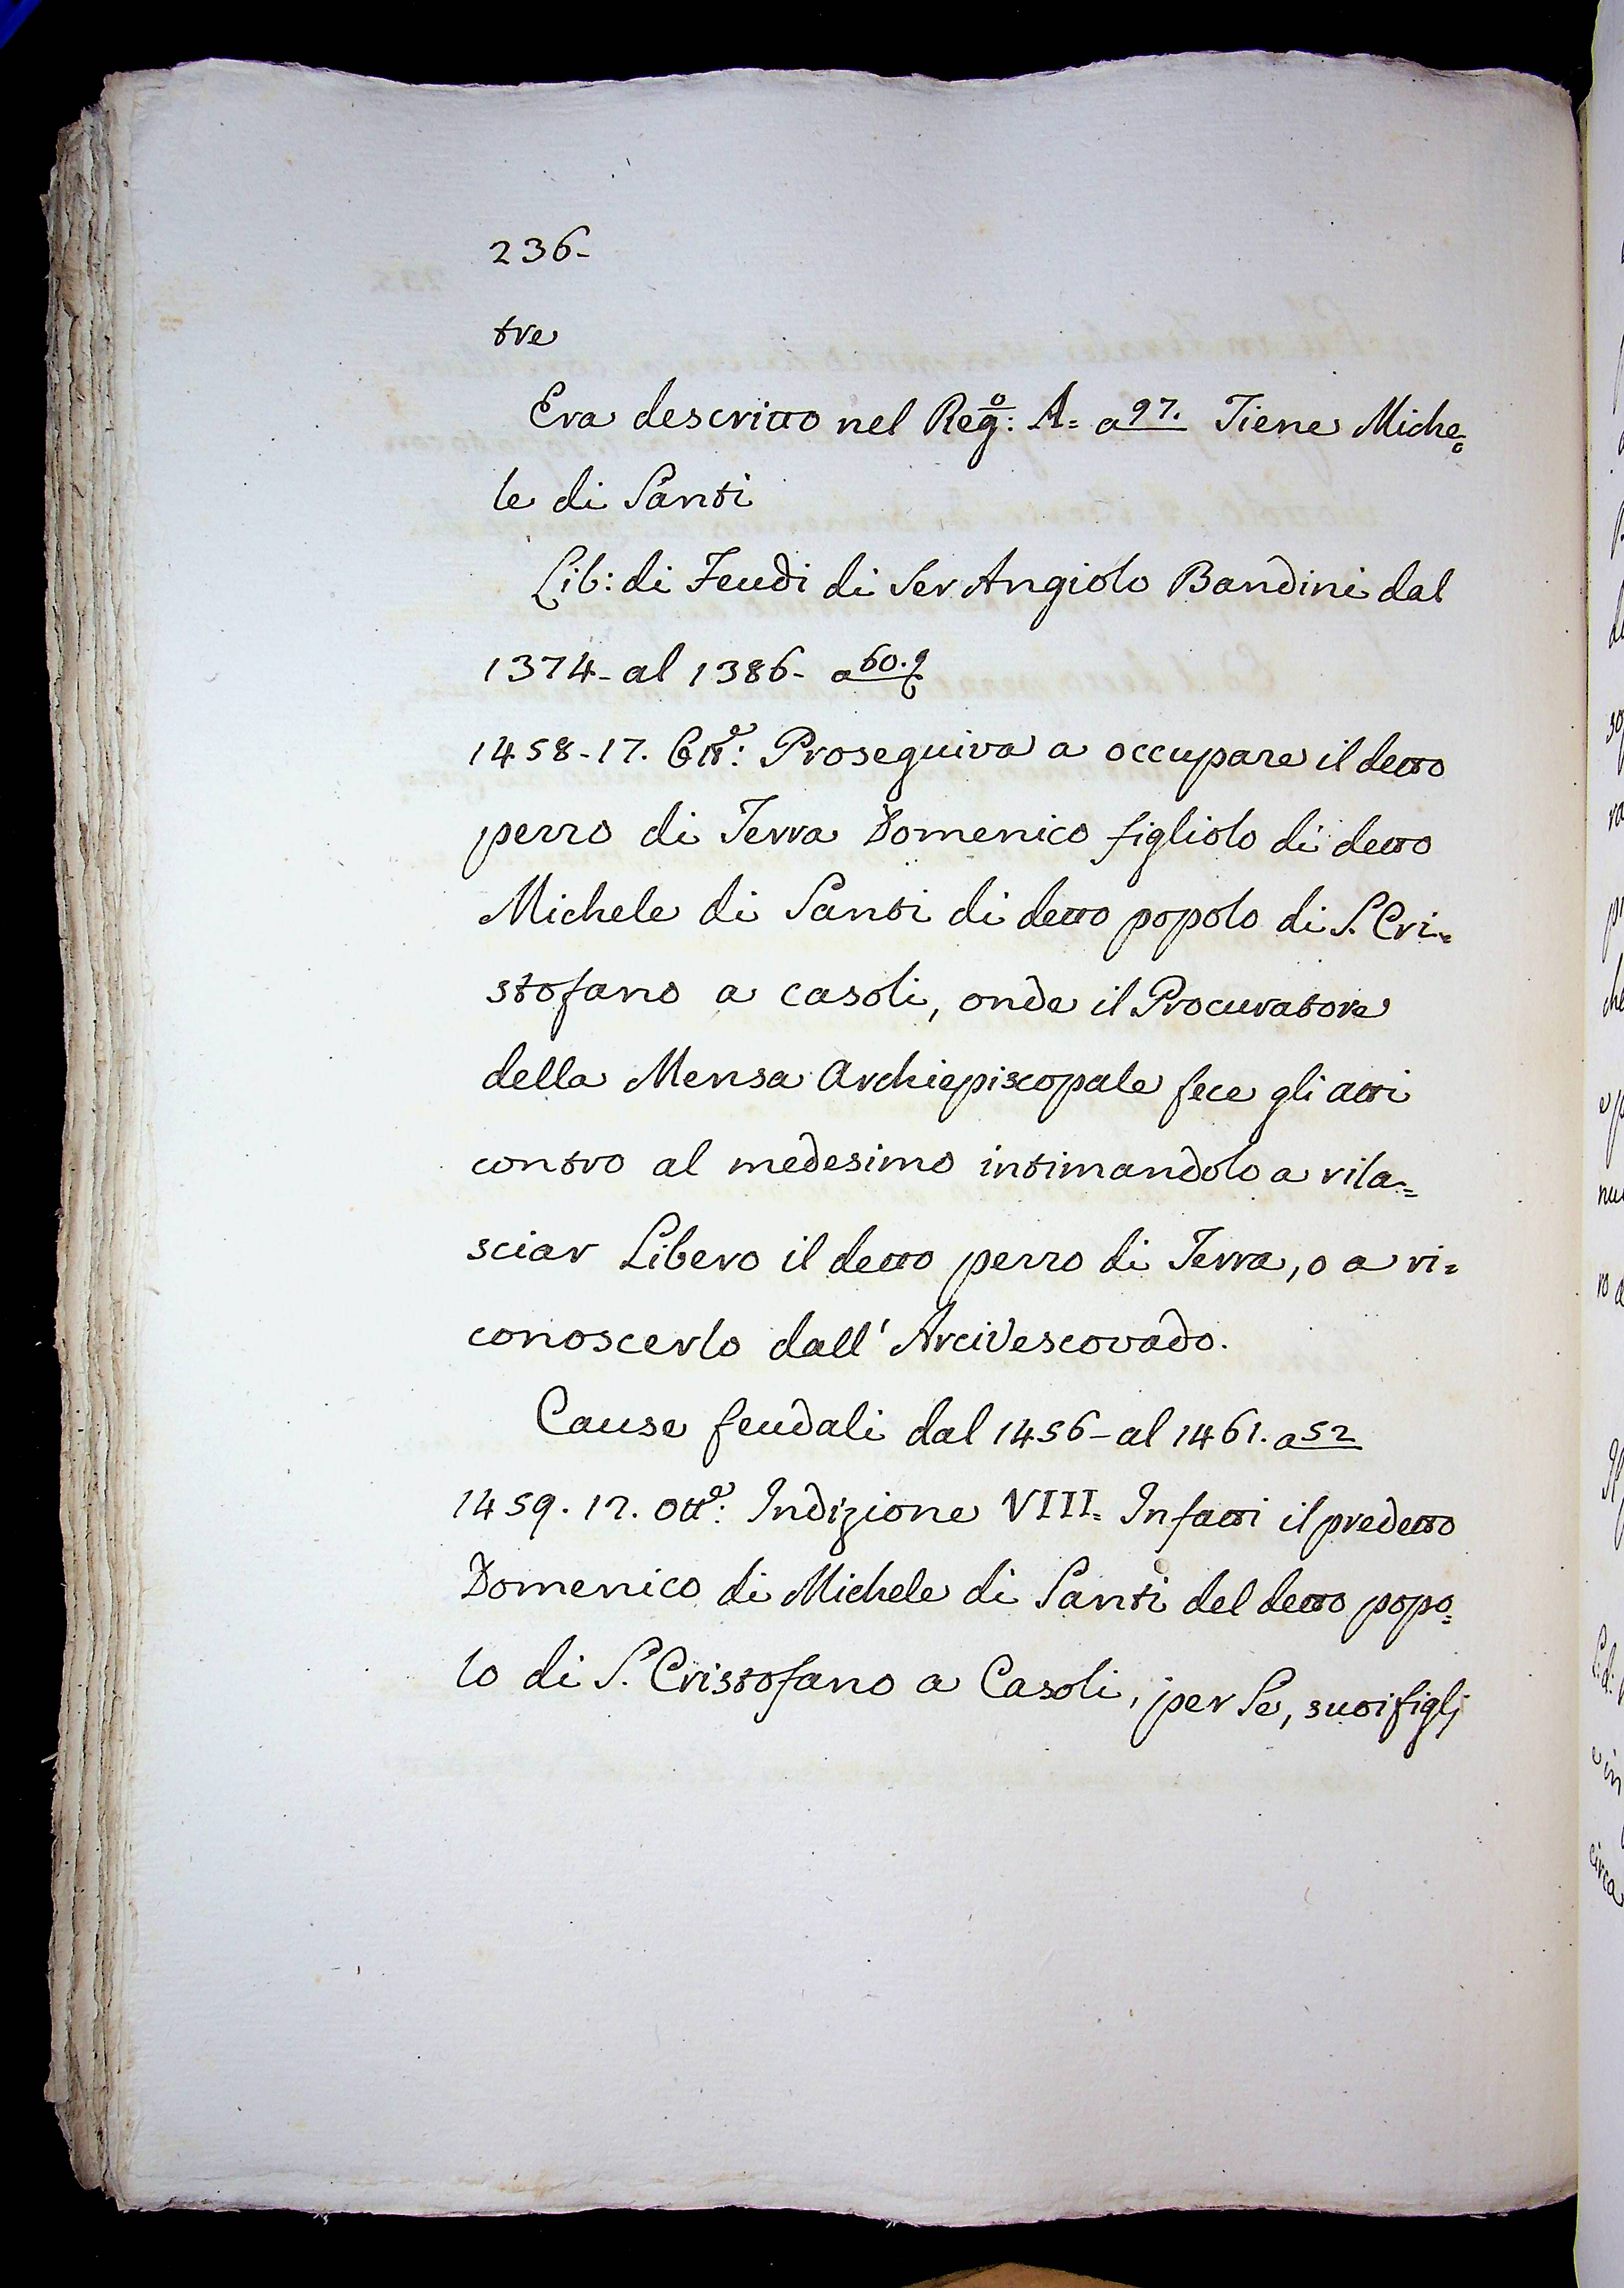 236-
tre
Era descritto nel Reg:º A= a 97. Tiene Miche=
le di Santi
Lib: di Feudi di Ser Angiolo Bandini dal
1374- al 1386- a 60.
1458-17. Ottᵉ: Proseguiva a occupare il detto
pezzo di Terra Domenico figliolo di detto
Michele di Santi di detto popolo di S. Cri=
stofano a casoli, onde il Procuratore
della Mensa Archiepiscopale fece gli atti
contro al medesimo intimandolo a rila=
sciar Libero il detto pezzo di Terra, o a ri=
conoscerlo dall' Arcivescovado.
Cause feudali dal 1456- al 1461. a 52
1459. 17. Ottᵉ: Indizione VIII= Infatti il predetto
Domenico di Michele di Santi del detto popo=
lo di S. Cristofano a Casoli, per Se, suoi figlj